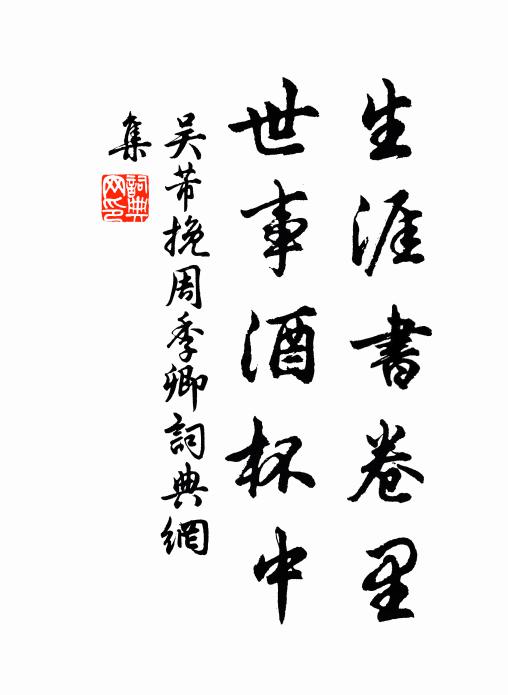 生涯書卷里
世事酒杯中
吴芾挽周季卿詞典網
集
詞典
网印